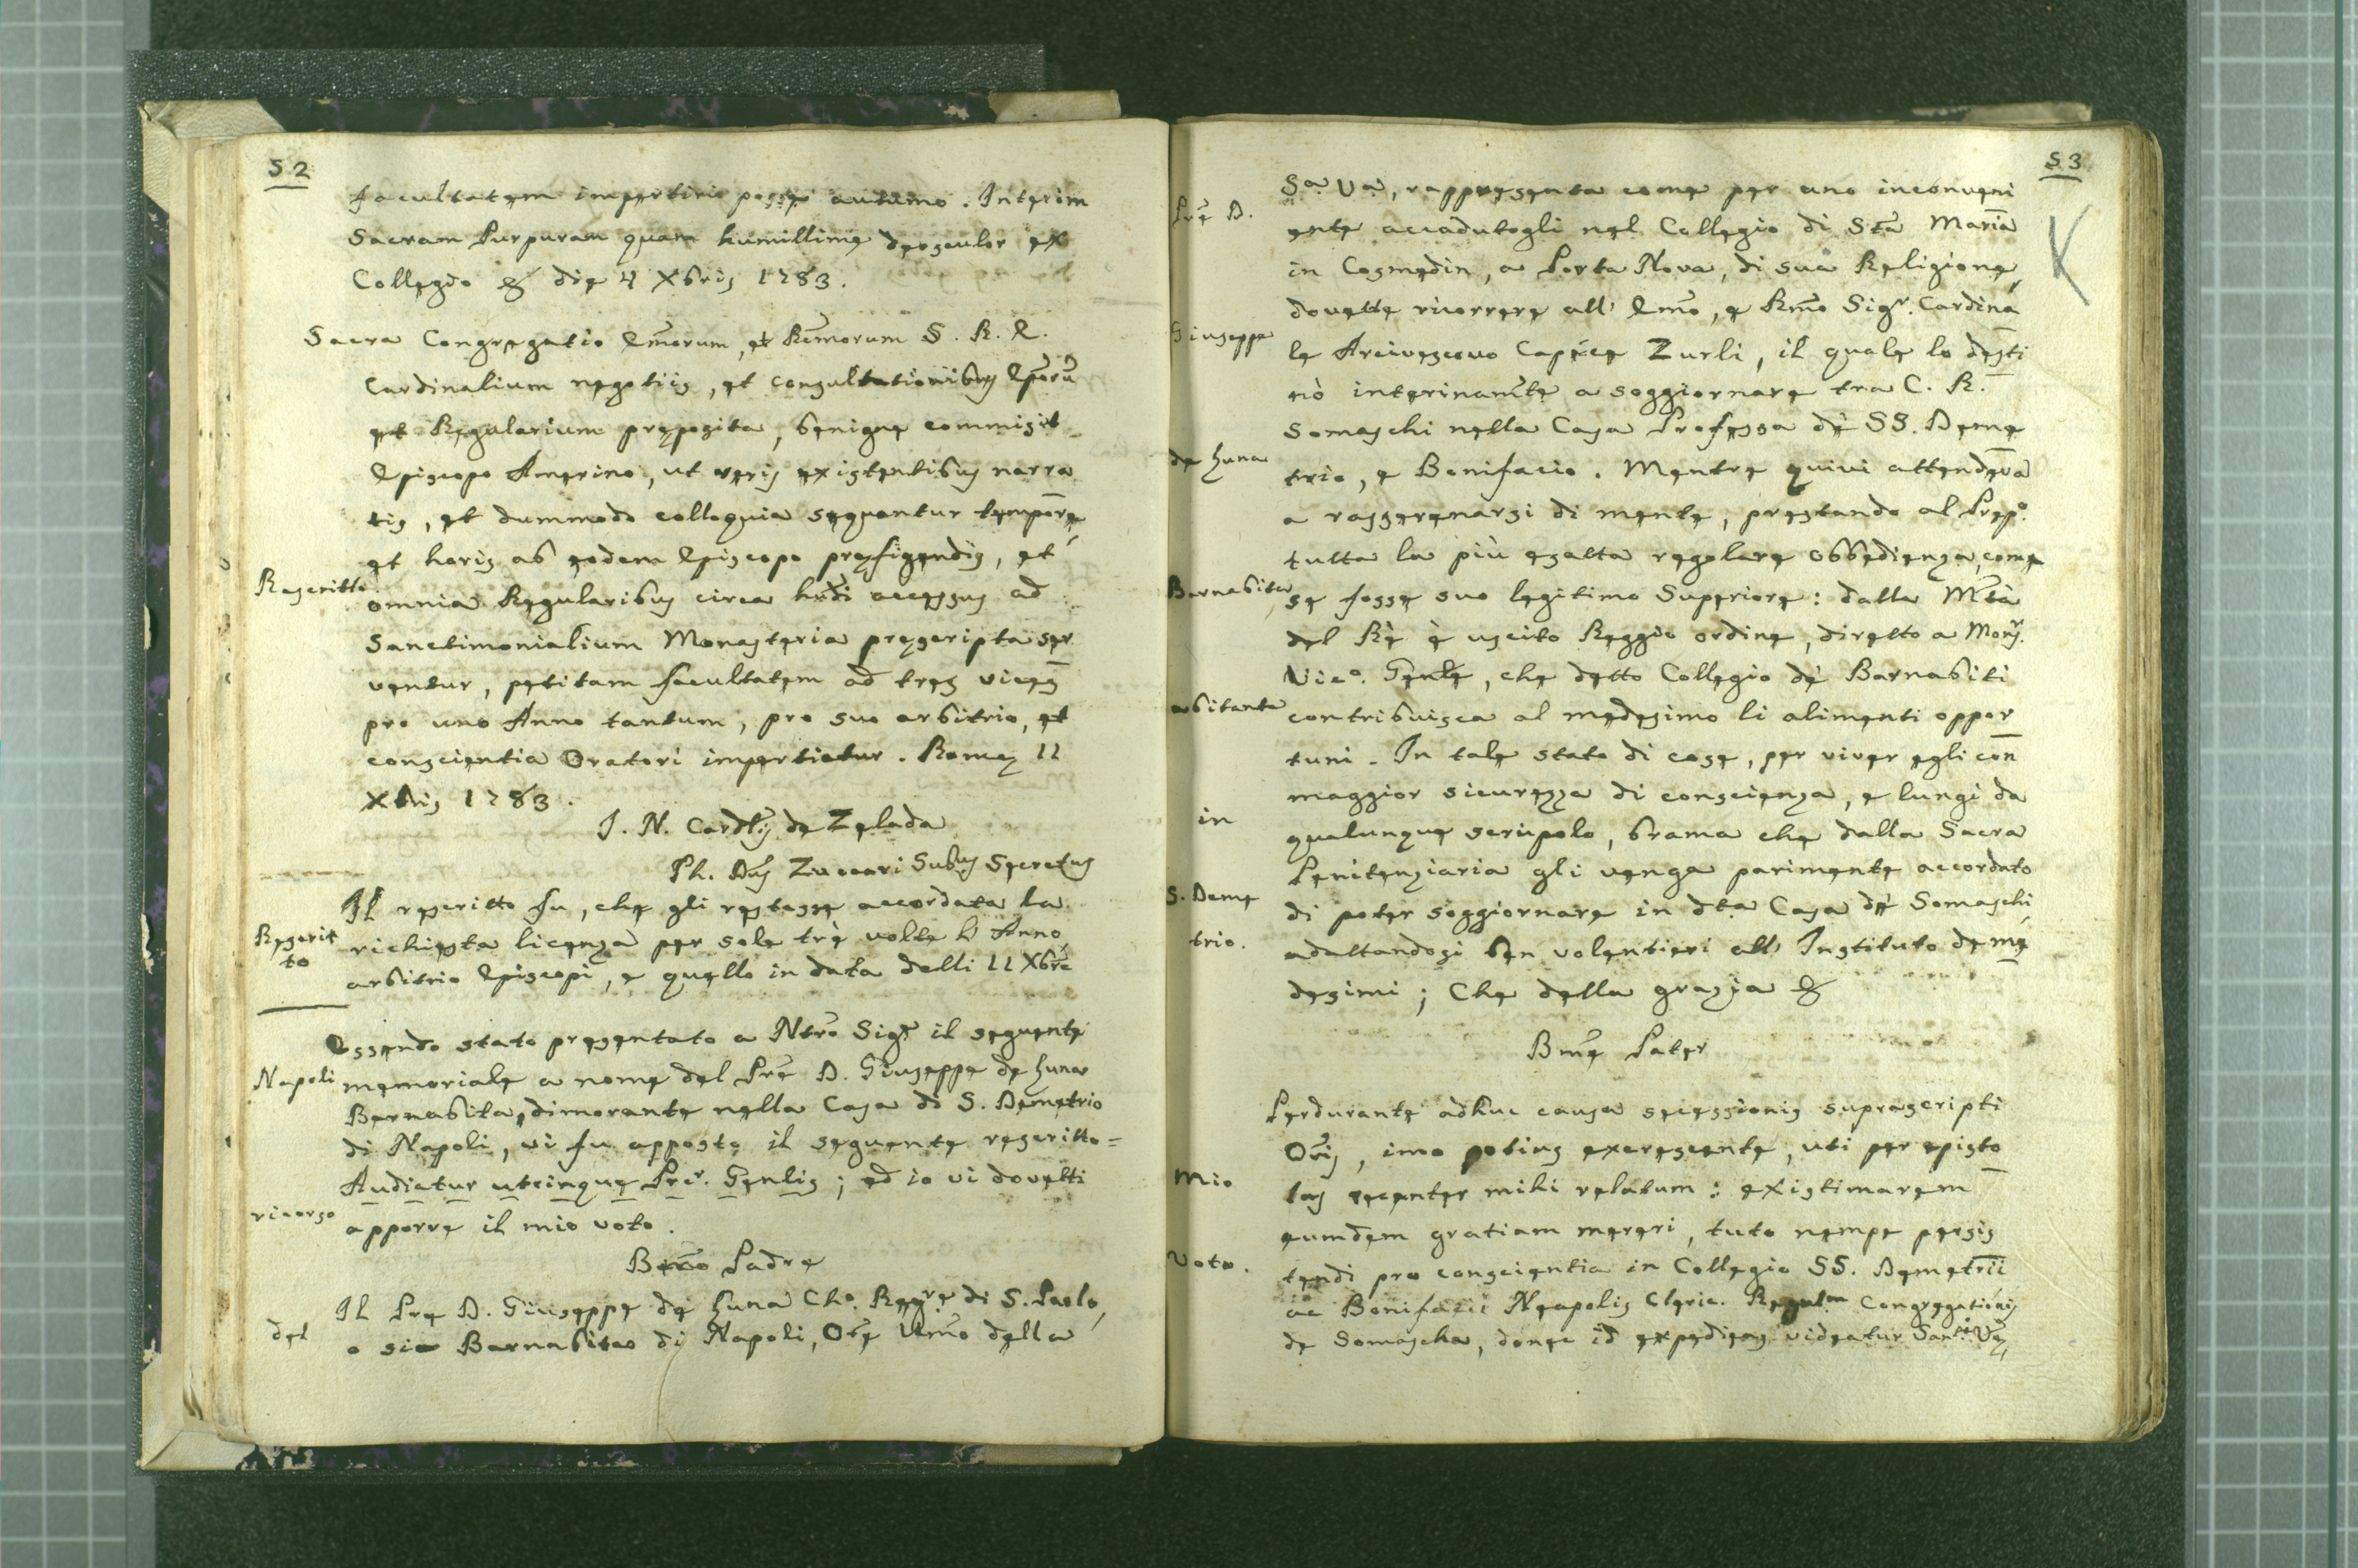 52
facultatem impertiri posse autumo. Interim
Sacram Purpuram quam humillime deosculor ex
Collegio & die 4 Xbris 1783.
Sacra Congregatio Emorum, et Rmorum S. R. E.
Cardinalium negotiis, et consultationibus Eporũ
et Regularium preposita, benigne commisit
Episcopo Amerino, ut veris existentibus narra
tis, et dummodo colloquia sequantur tempore,
et horis ab eodem Episcopo prefigendis, et
Rescritto
omnia Regularibus circa hmdi accessus ad
Sanctimonialium Monasteria prescripta ser
ventur, petitam facultatem ad tres vices
pro uno Anno tantum, pro suo arbitrio, et
conscientia Oratori impertiatur. Rome 11
Xbris 1783.
J. N. Cardlis de Zelada
Ph. Zuccari Subus Secretus
Il rescritto fu, che gli restasse accordata la
Rescrit
to
richiesta licenza per sole trè volte l' Anno
arbitrio Episcopi, e quello in data delli 11 Xbre
Essendo stato presentato a Ntro Sigr il seguente
Napoli
memoriale a nome del Pre D. Giuseppe de Luna
Barnabita, dimorante nella Casa di S. Demetrio
di Napoli, vi fu apposto il seguente rescritto =
Audiatur utcinque Pror. Genlis; ed io vi dovetti
ricorso
apporre il mio voto.
Bmo Padre
Il Pre D. Giuseppe de Luna Cho. Regre di S. Paolo,
del
o sia Barnabitao di Napoli, Ore Umo della
53
Sa Va, rappresenta come per uno inconveni
Pre D.
ente accadutogli nel Collegio di Sta Maria
in Cosmedin, a Porta Nova, di sua Religione,
dovette ricorrere all' Emo, e Rmo Sigr. Cardina
Giuseppe
le Arcivescovo Capece Zurli, il quale lo desti
nò interinamte a soggiornare tra C. R.
Somaschi nella Casa Professa dè SS. Deme
de Luna
trio, e Bonifacio. Mentre quivi attendeva
a rasserenarsi di mente, prestando al Prepo.
tutta la più esatta regolare obbedienza, come
Barnabita
se fosse suo legitimo Superiore: dalla Mtà
del Rè è uscito Reggio ordine, diretto a Monsr.
Vico. Genle, che detto Collegio dè Barnabiti
abitante
contribuisca al medesimo li alimenti oppor
tuni. In tale stato di cose, per viver egli con
maggior sicurezza di conscienza, e lungi da
in
qualunque scrupolo, brama che dalla Sacra
Penitenziaria gli venga parimente accordato
S. Deme
di poter soggiornare in dta Casa dè Somaschi,
trio.
adattandosi ben volentieri all' Instituto de me
desimi; Che della grazia &
Bme Pater
Perdurante adhuc causa secessionis suprascripti
Oris, imo potius excrescente, uti per episto
Mio
las recenter mihi relatum: existimarem
eumdem gratiam mereri, tuto nempe persis
Voto.
tendi pro conscientia in Collegio SS. Demetrii
ac Bonifacii Neapolis Cleric. Regulm Congregationis
de Somascha, donec id expediens videatur Santi Ve